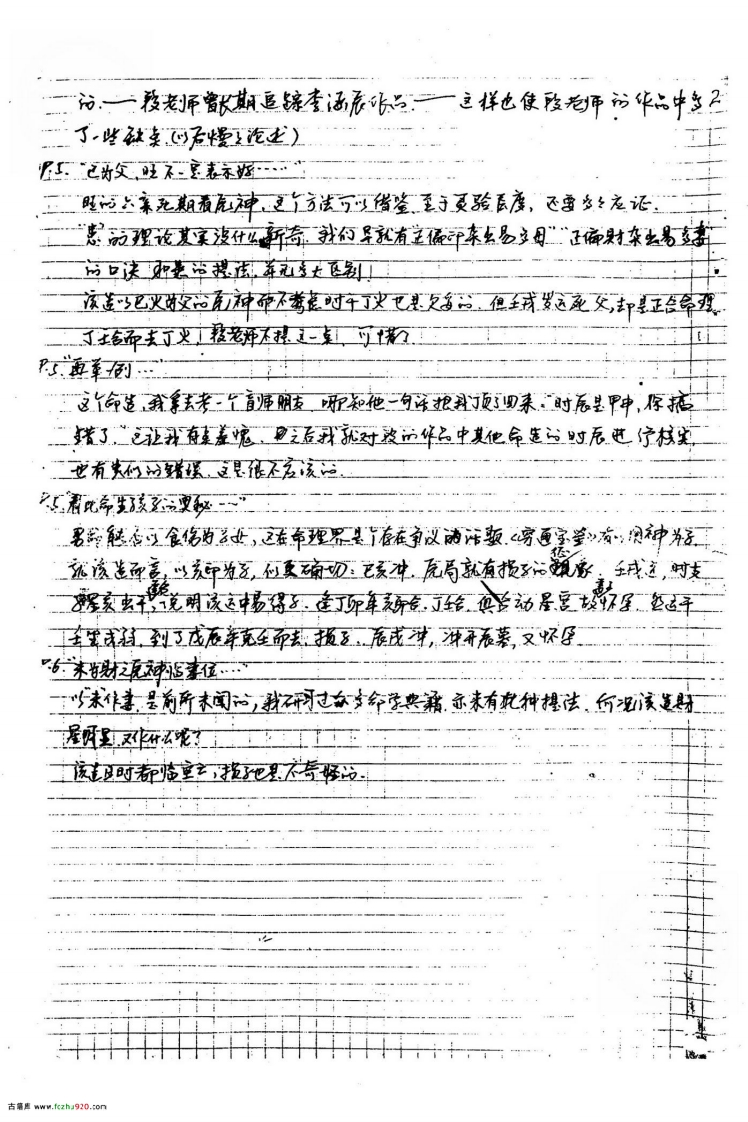 的.——段老师曾长期追踪李涵辰作品.——这样也使段老师的作品中多2
了一些缺点(以后慢慢论述)
P.5. "巳为父,旺不一定表示好……"
旺的六亲死期看尾神,这个方法可以借鉴.至于灵验度,还要多多应证.
的理论其实没什么新奇,我们早就有"正偏印杂出易多母""正偏财杂出易多妻"
的口诀 和 的提法,并无多大区别!
该造以巳火为父的尾神而不考虑时干丁火也是欠妥的.但壬戌岁运死父,却是正合命理.
丁壬合而去丁火!段老师不提这一点,可惜了.
P.5."再举一例…"
这个命造,我拿去考一个盲师朋友.哪知他一句话把我顶了回来."时辰是甲申,你搞
错了."这让我有点羞愧. 之后我就对段的作品中其他命造的时辰进行核实,
也有类似的错误.这是很不应该的.
P.5."看此命生孩子的奥秘……"
能否以食伤为子女,这在命理界是个存在争议的话题.《穷通宝鉴》有以用神为子.
就该造而言,以亥印为子,似更确切.巳亥冲.尾局就有损子的征象.壬戌运,时支
亥水 ,说明该运中易得子.逢丁卯年亥卯合.丁壬合,俱合动星宫故怀孕.
到了戊辰年克壬而去.损子.辰戌冲,冲开辰墓,又怀孕.
P.6 "未为财之尾神临妻位……"
以未作妻,是前所未闻的,我研习过众多命学典籍,亦未有此种提法.何况该造财
星明显,又作什么呢?
该造日时都临空亡,损子也是不奇怪的.
古籍库 www.fczhu920.com